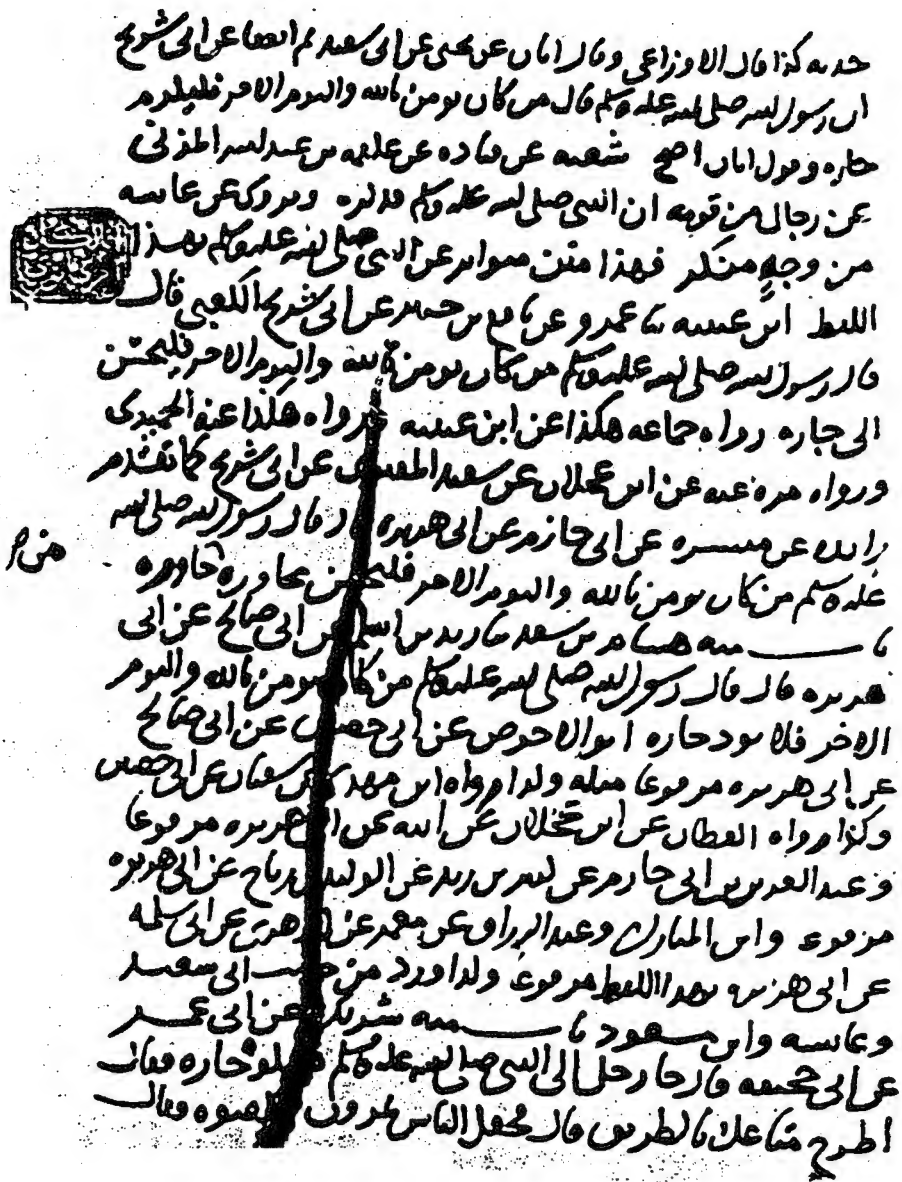 حديثه كذا قال الاوزاعي وقال ابان عن يحيى عن ابي سعيد عن ابي شريح
ان رسول الله صلى الله عليه وسلم قال من كان يومن بالله واليوم الاخر فليكرم
جاره وقول ابان اصح شعبه عن قتاده عن علقمه بن عبد الله المزني
عن رجال من قومه ان النبي صلى الله عليه وسلم فذكره ويروى عن عايشه
من وجه منكر فهذا متن متواتر عن النبي صلى الله عليه وسلم بهذا
اللفظ ابن عيينه نا عمرو عن نافع بن جبير عن ابي شريح الكعبي قال
قال رسول الله صلى الله عليه وسلم من كان يومن بالله واليوم الاخر فليحسن
الى جاره رواه جماعه هكذا عن ابن عيينه ورواه هكذا عنه الحميدي
ورواه مره عنه عن ابن عجلان عن سعيد المقبري عن ابي شريح كما تقدم
زايده عن ميسره عن ابي حازم عن ابي هريره قال قال رسول الله صلى الله
عليه وسلم من كان يومن بالله واليوم الاخر فليحسن مجاورة من جاوره
هشام بن سعد نا زيد بن اسلم عن ابي صالح عن ابي
هريره قال قال رسول الله صلى الله عليه وسلم من كان يومن بالله واليوم
الاخر فلا يوذ جاره ابو الاحوص عن ابي حصين عن ابي صالح
عن ابي هريره مرفوعا مثله وكذا رواه ابن مهدي عن سفيان عن ابي حصين
وكذا رواه القطان عن ابن عجلان عن ابيه عن ابي هريره مرفوعا
وعبد العزيز بن ابي حازم عن كثير بن زيد عن الوليد بن رباح عن ابي هريره
مرفوعا وابن المبارك وعبد الرزاق عن معمر عن الزهري عن ابي سلمه
عن ابي هريره بهذا اللفظ مرفوعا وكذا ورد من حديث ابي سعيد
وعايشه وابن مسعود شريك عن ابي عمر
عن ابي جحيفه قال جا رجل الى النبي صلى الله عليه وسلم يشكو جاره فقال
اطرح متاعك بالطريق قال فجعل الناس يمرون فيلعنوه فقال